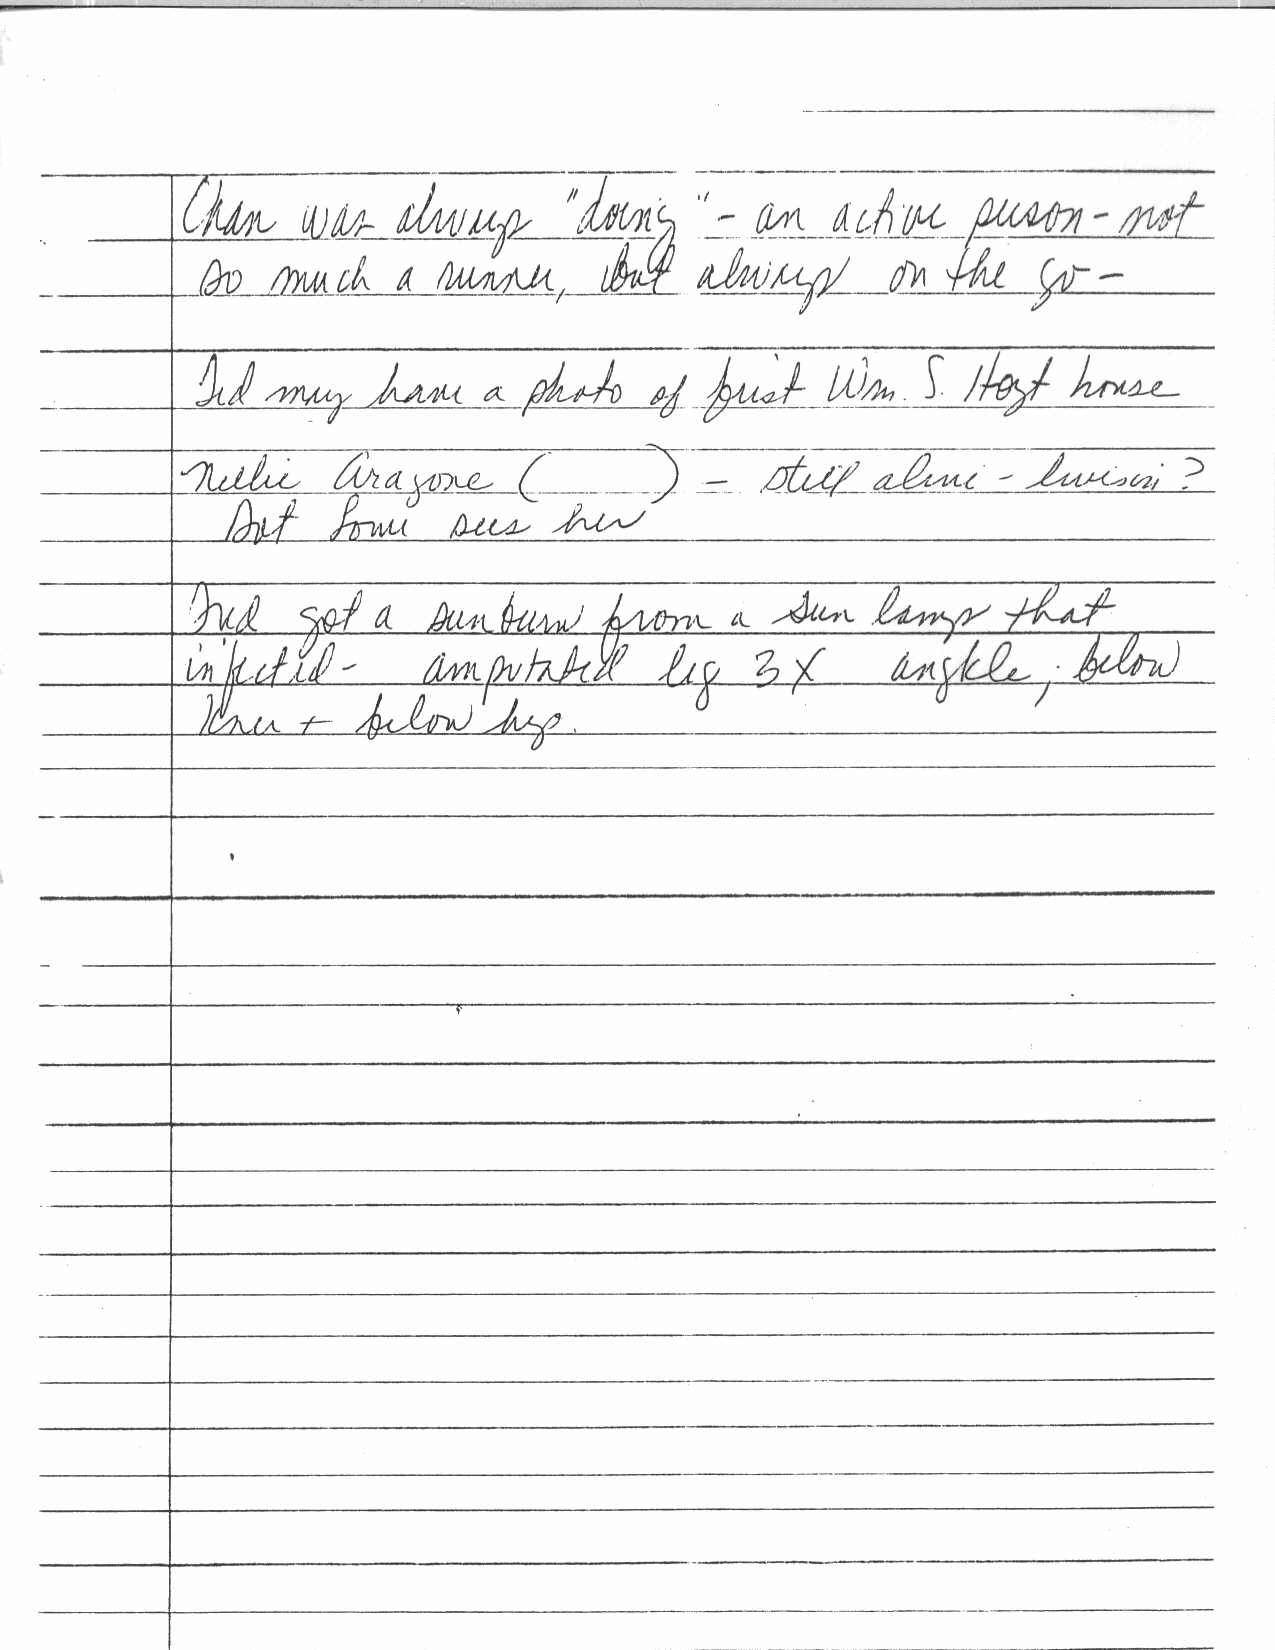 Chan was always "doing" - an active person - not
so much a runner, but always on the go -
Ted may have a photo of first Wm. S. Hoyt house
Nellie Aragone ( ) - still alive -
Dot sees her
Fred got a sunburn from a sun lamp that
infected - amputated leg 3X angkle, below
knee + below hip.